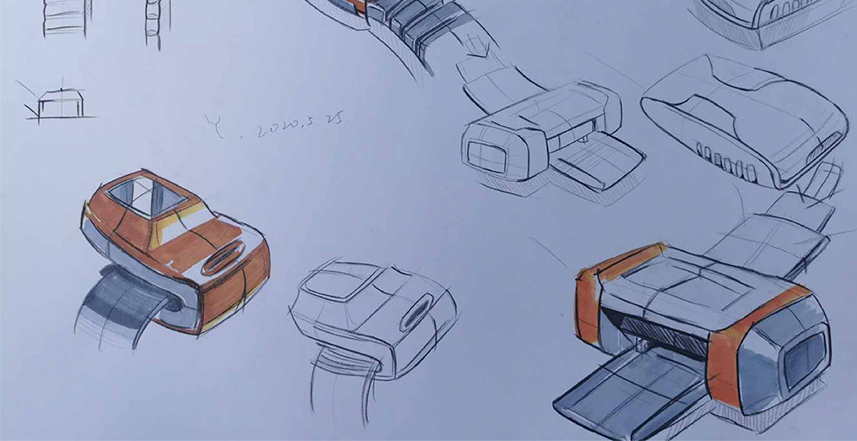 Y. 2020.5.25